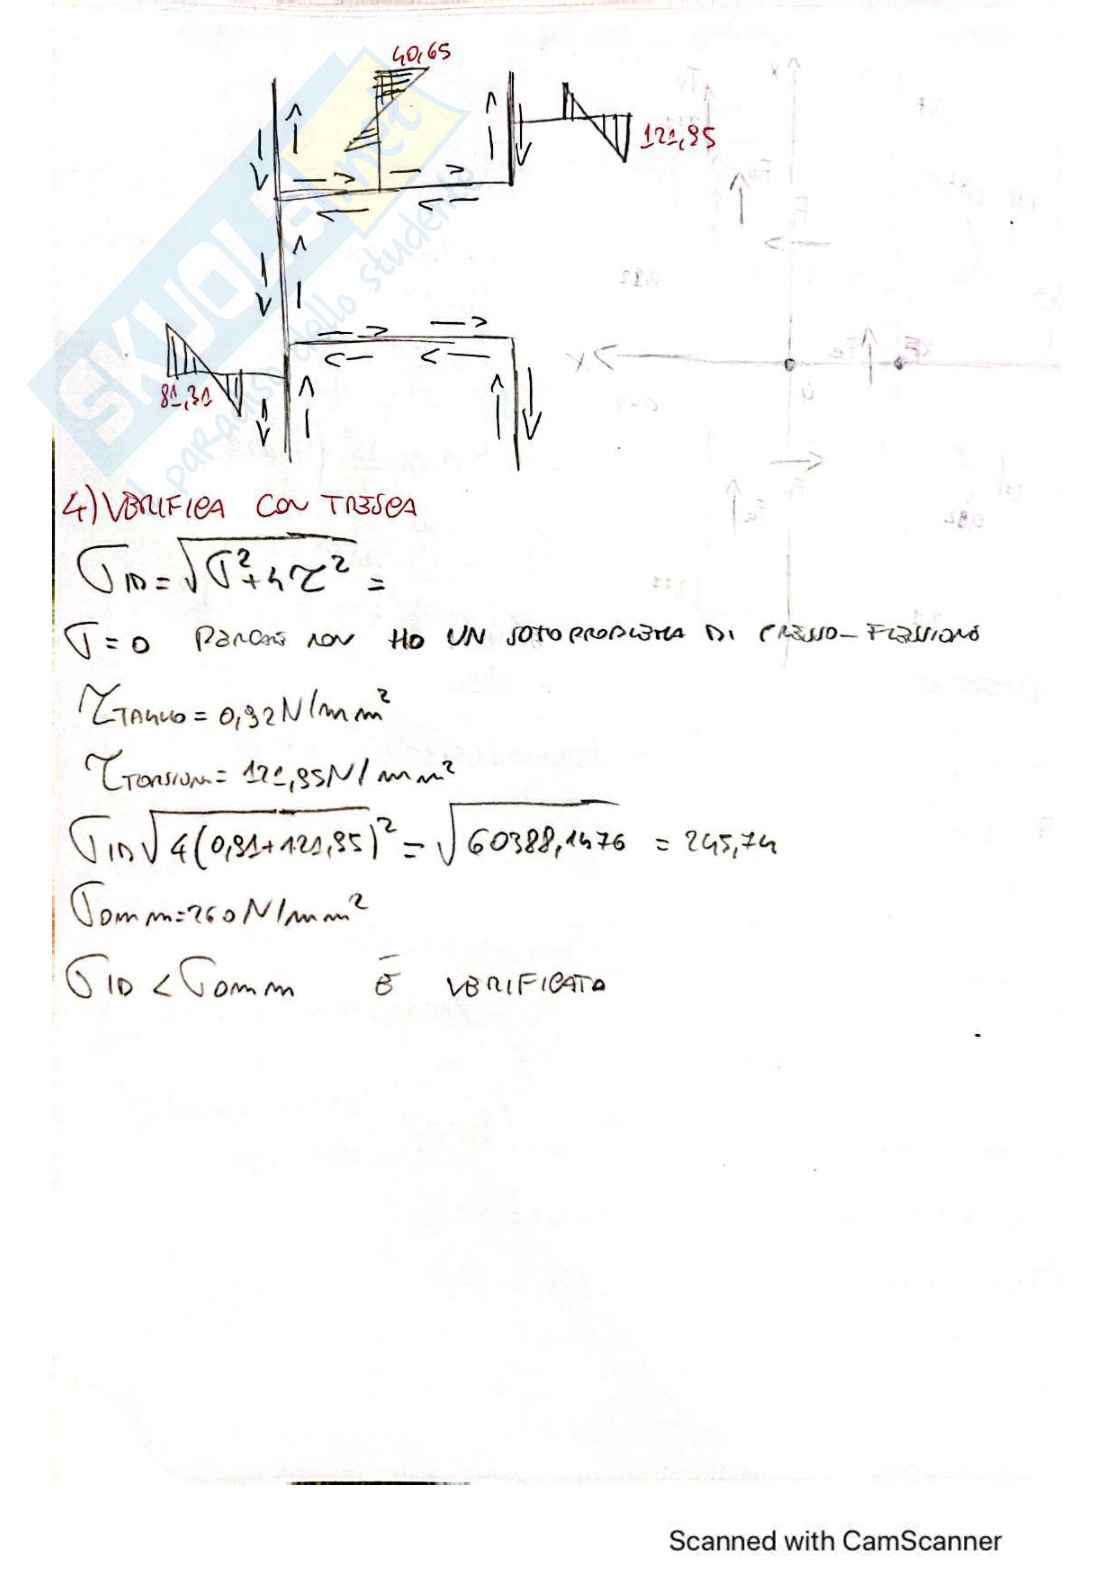 40,65
121,95
81,31
4) VERIFICA CON TRESCA
σID = √σ²+4τ² =
σ = 0 PERCHÈ NON HO UN SOTOPROBLEMA DI PRESSO-FLESSIONE
τTAGLIO = 0,92 N/mm²
τTORSIONE = 121,95 N/mm²
σID √4(0,91+121,95)² = √60388,1476 = 245,74
σamm = 260 N/mm²
σID < σamm È VERIFICATO
SKUOLA.net
il paradiso dello studente
Scanned with CamScanner